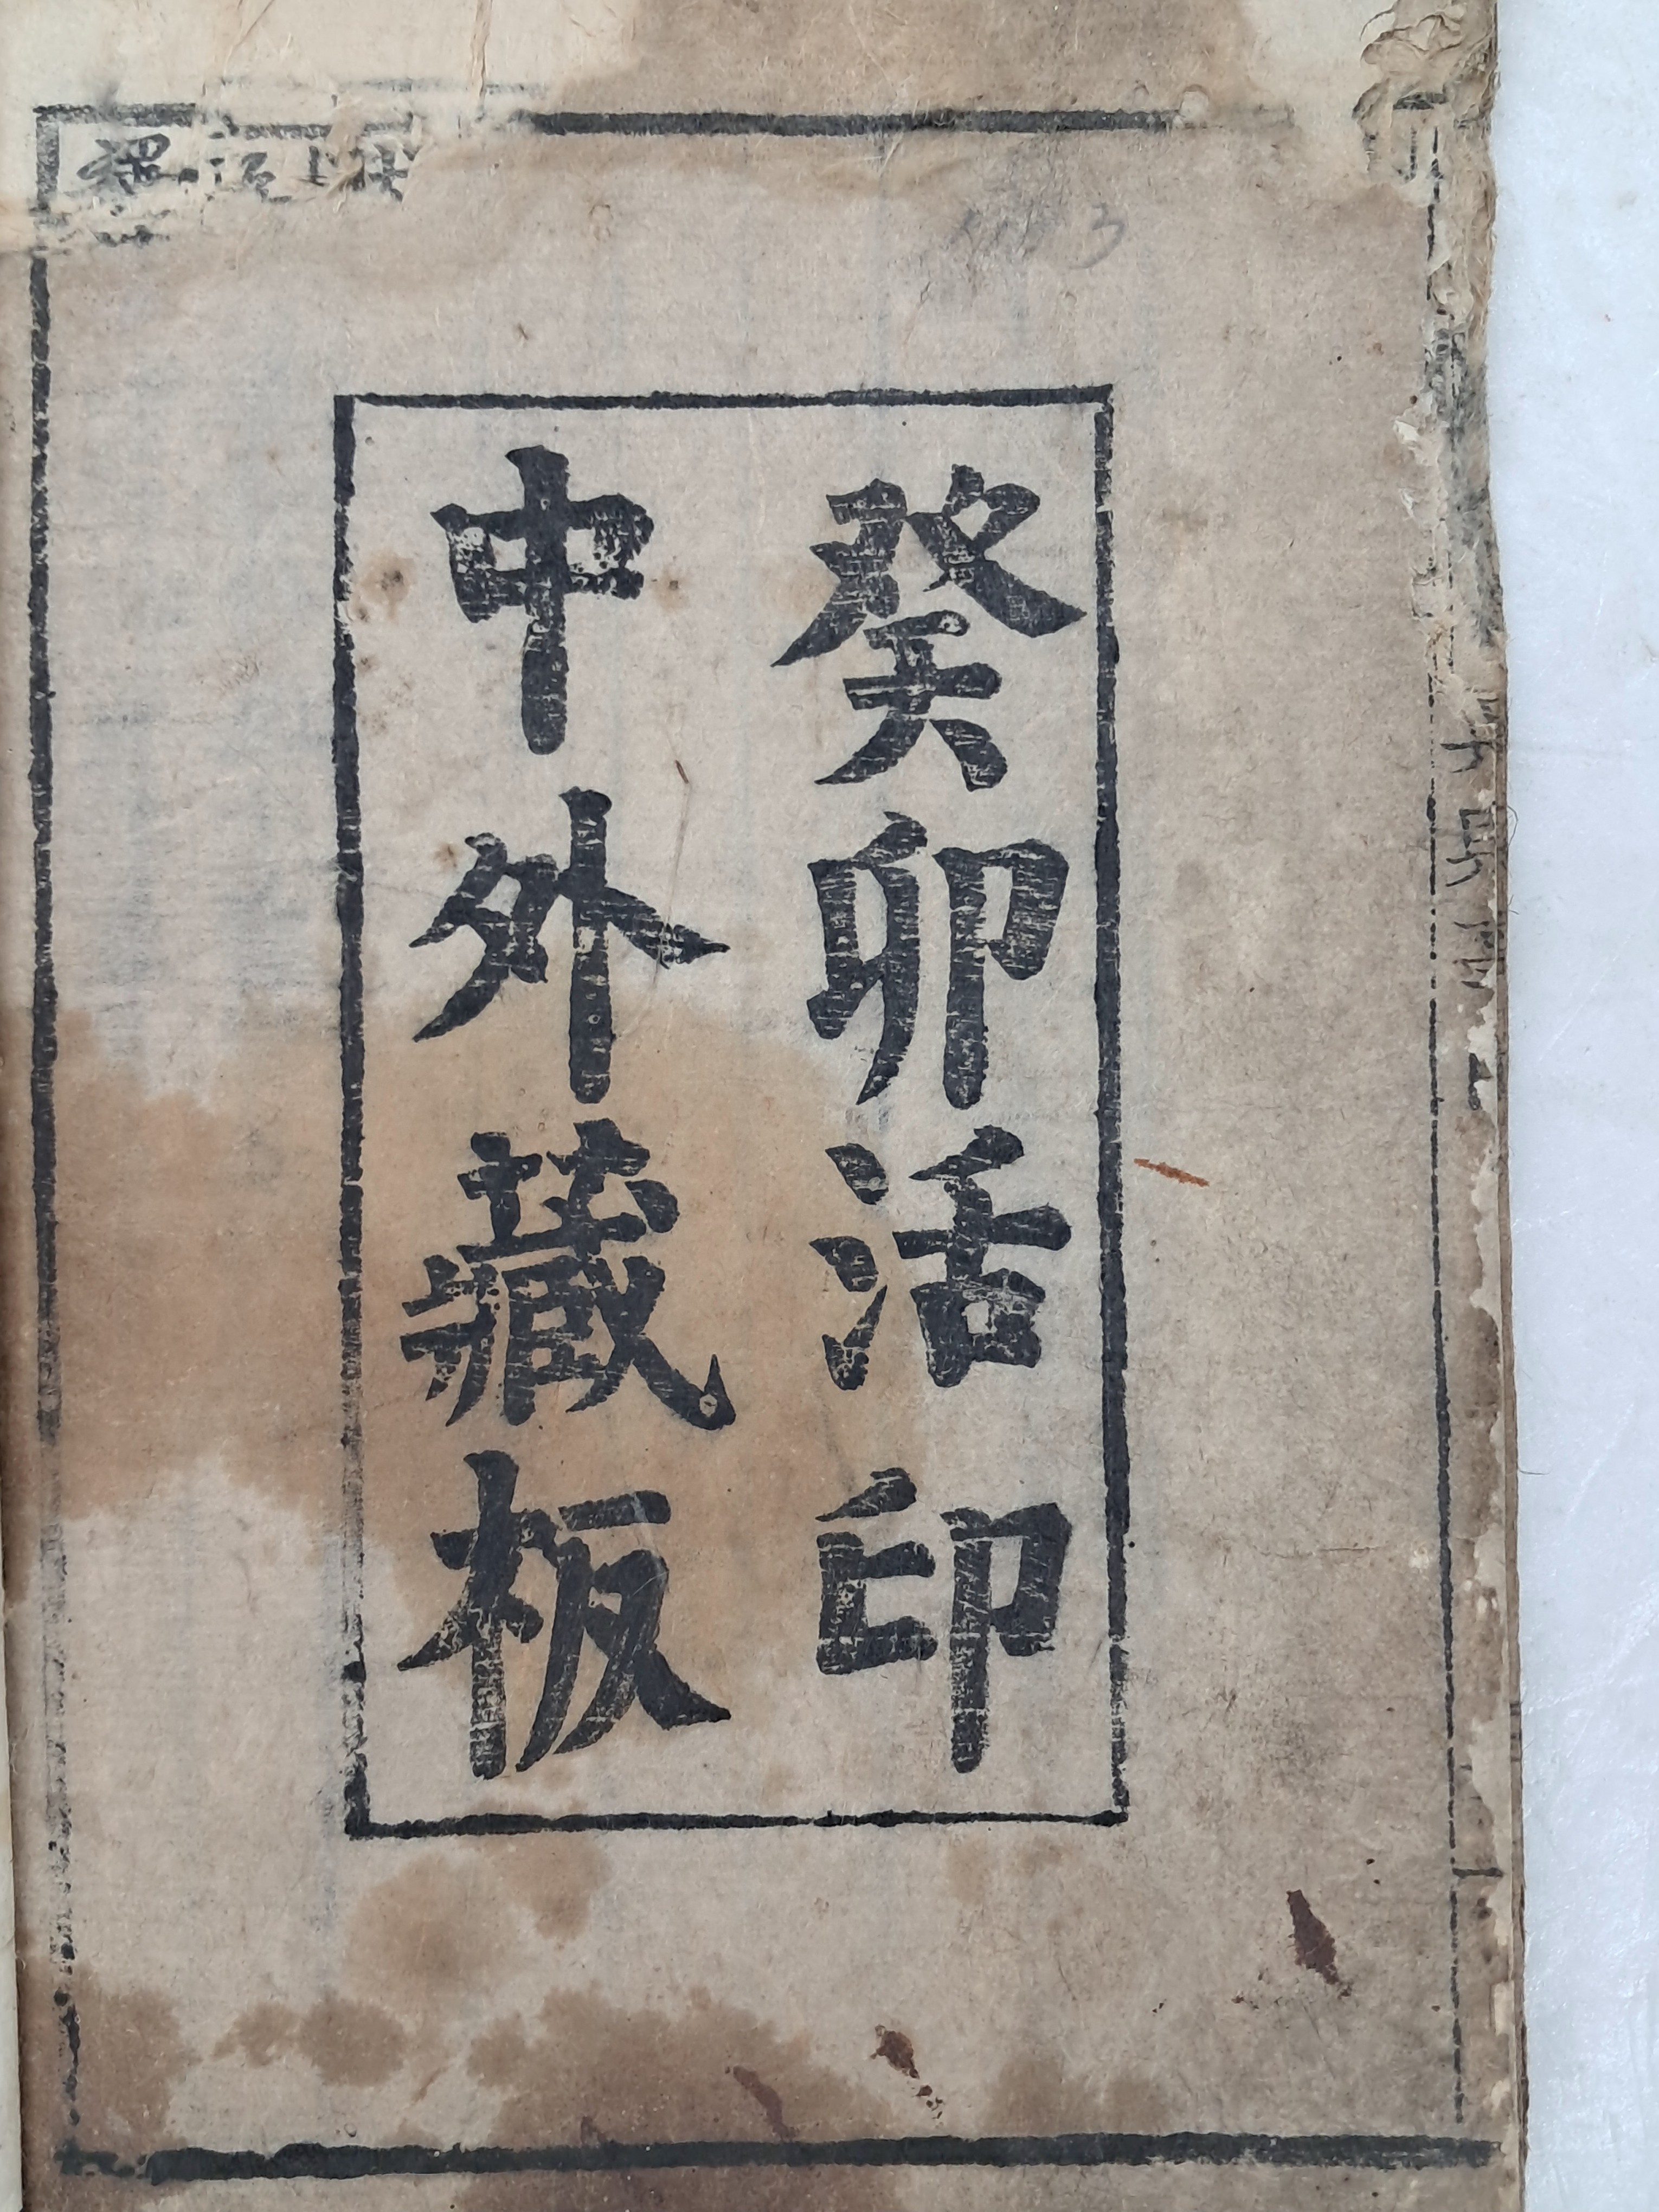 癸卯活印
中外藏板